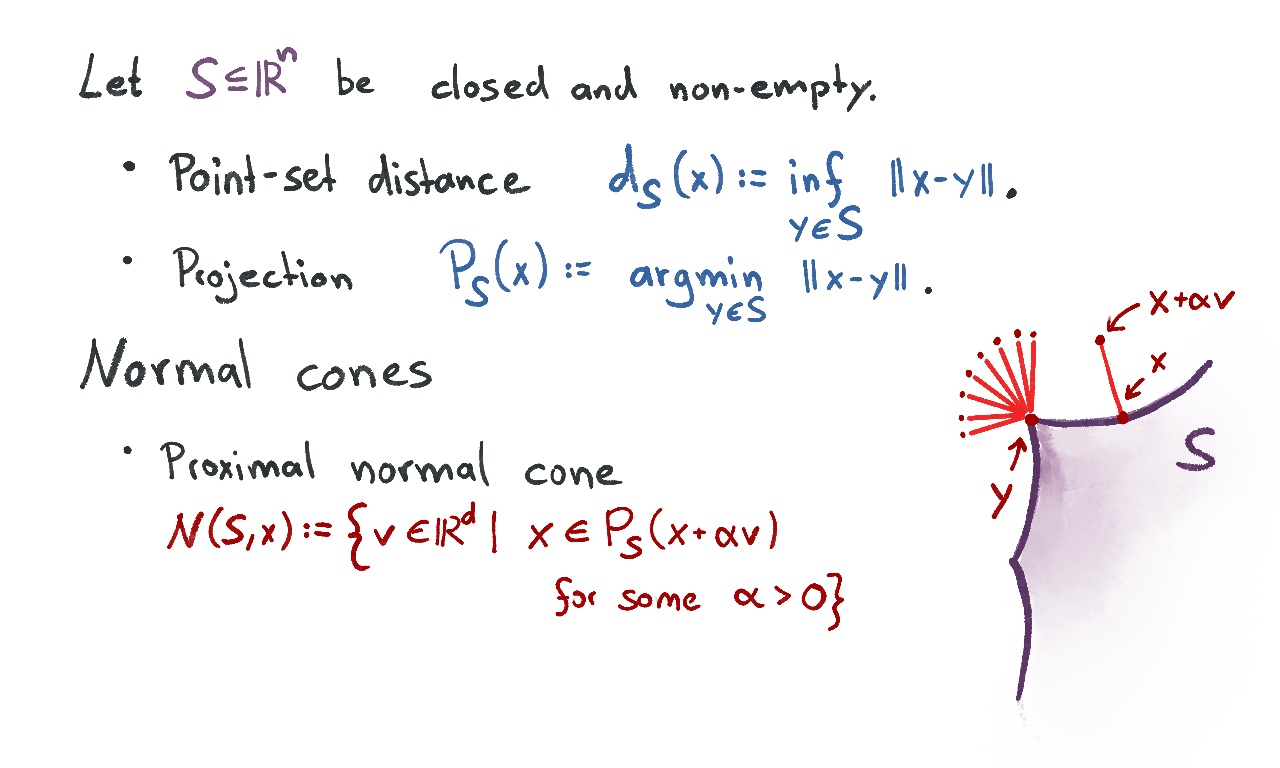 Let S⊆ℝⁿ be closed and non-empty.
• Point-set distance d_S(x) := inf_{y∈S} ||x-y||.
• Projection P_S(x) := argmin_{y∈S} ||x-y||.
x+αv
Normal cones
x
• Proximal normal cone
S
y
N(S,x) := {v∈ℝ^d | x ∈ P_S(x+αv)
for some α>0}